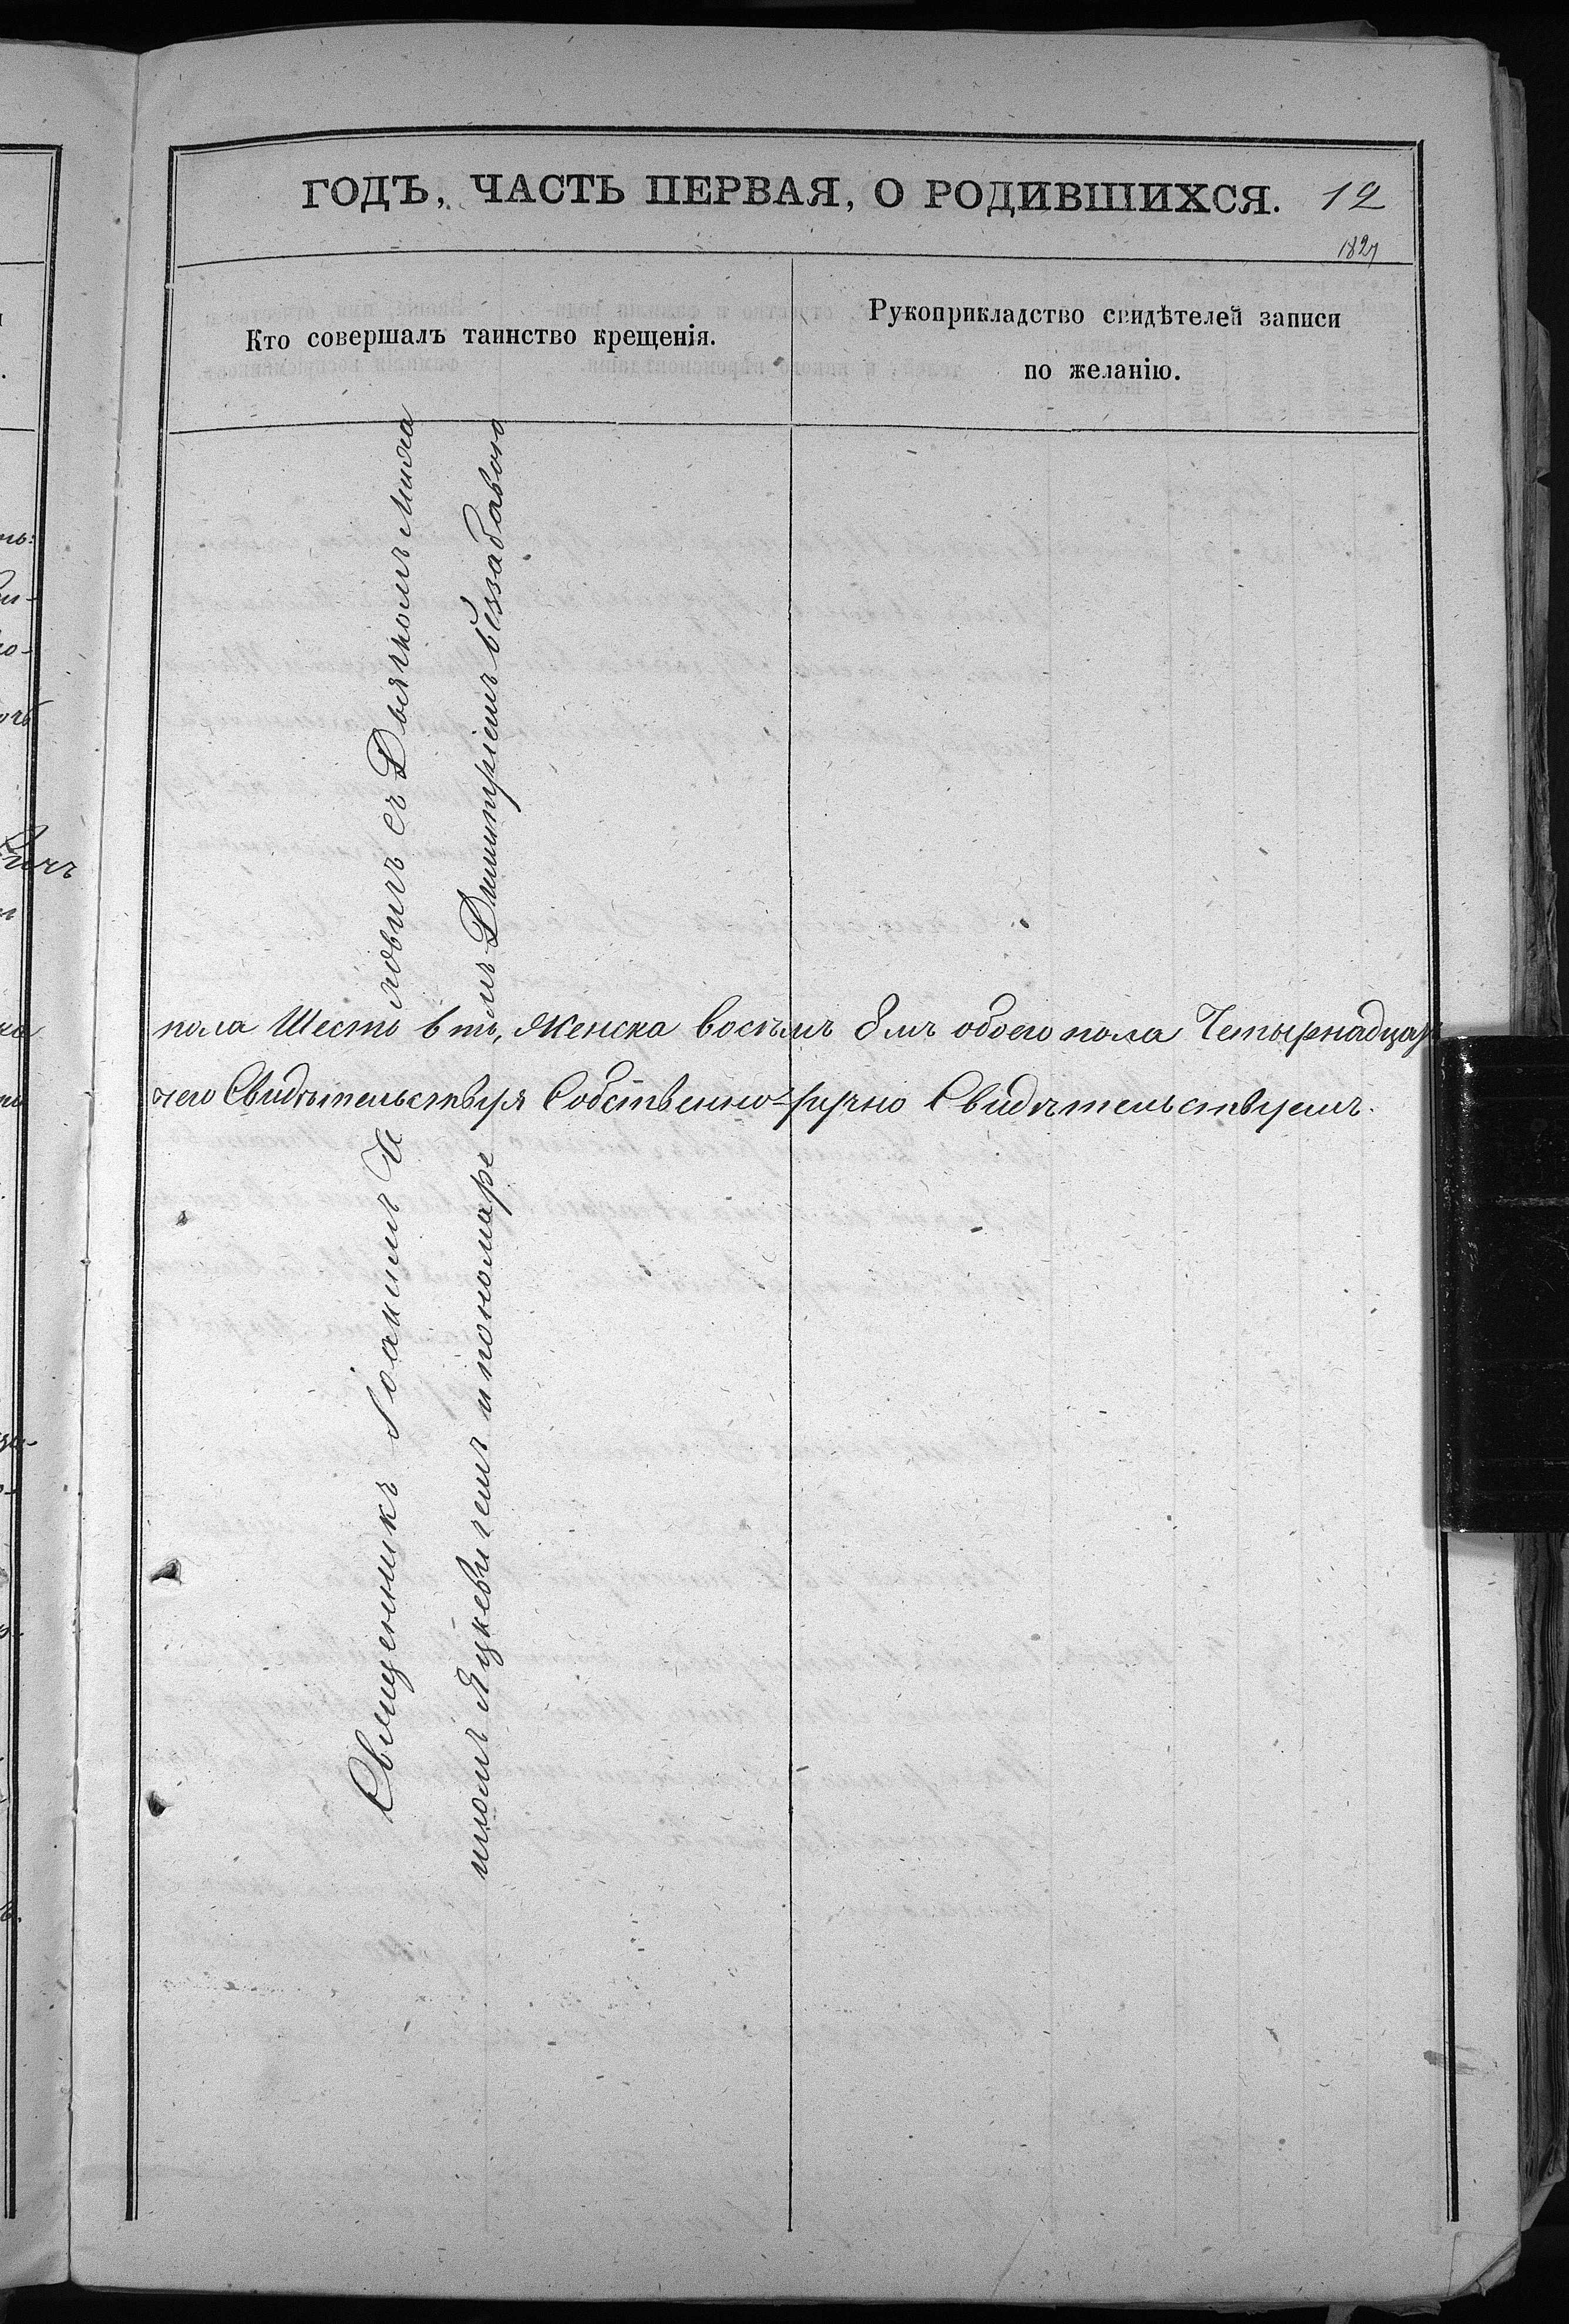 ГОДЪ, ЧАСТЬ ПЕРВАЯ, О РОДИВШИХСЯ. 12
1827
Кто совершалъ таинство крещенія.
Рукоприкладство свидѣтелей записи
по желанію.
Священникъ Іоакимъ ловичъ съ Дьячкомъ Миха
иломъ Яцкевичемъ и пономаре мъ Димитріемъ Беззабавою
пола Шесть 6 ть, Женска восемъ 8 мъ обоего пола Четырнадцать
чего Свидѣтельствуя Собственно-ручно Свидѣтельствуемъ.